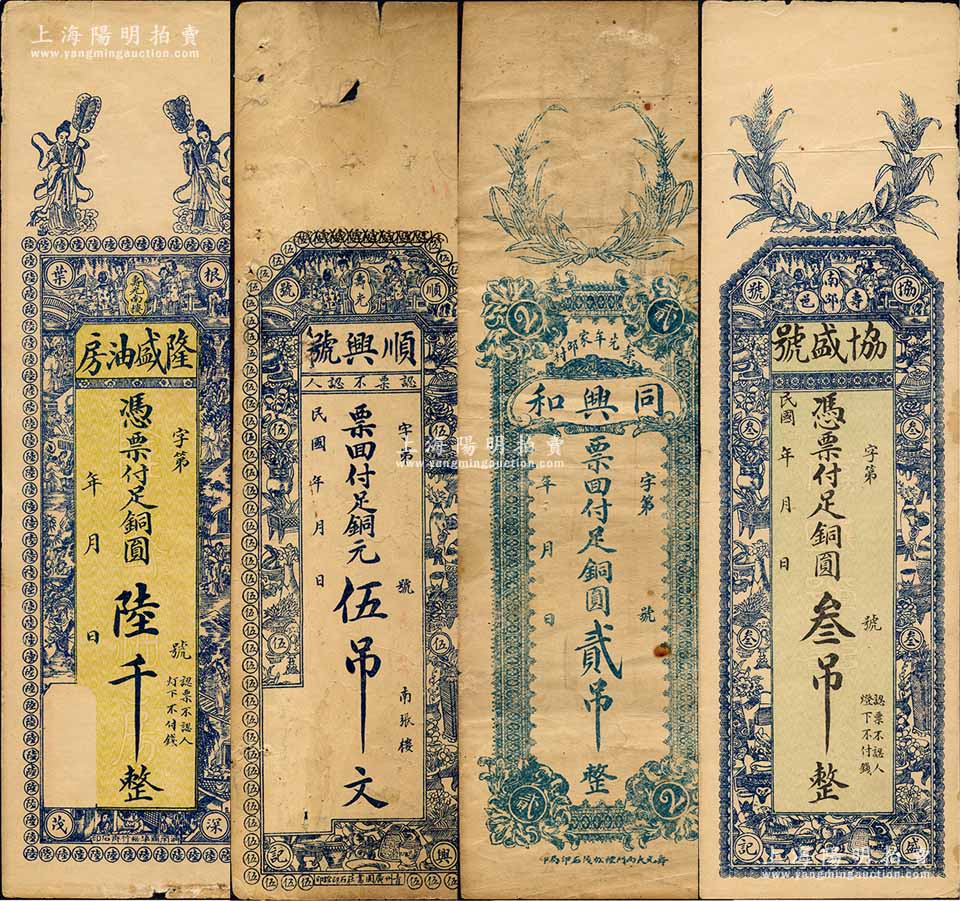 上海陽明拍賣
www.yangmingauction.com
根葉
深茂
隆盛油房
字第 號
憑票付足銅圓陸千整
年 月 日
認票不認人
灯下不付錢
壽光
順號
興記
順興號
認票不認人
字第 號
票回付足銅元伍吊文
民國 年 月 日
南張樓
同興和
字第 號
票回付足銅圓貳吊整
年 月 日
南邵
壽邑
協號
盛記
協盛號
字第 號
憑票付足銅圓叁吊整
民國 年 月 日
認票不認人
燈下不付錢
上海陽明拍賣
www.yangmingauction.com
上海陽明拍賣
www.yangmingauction.com